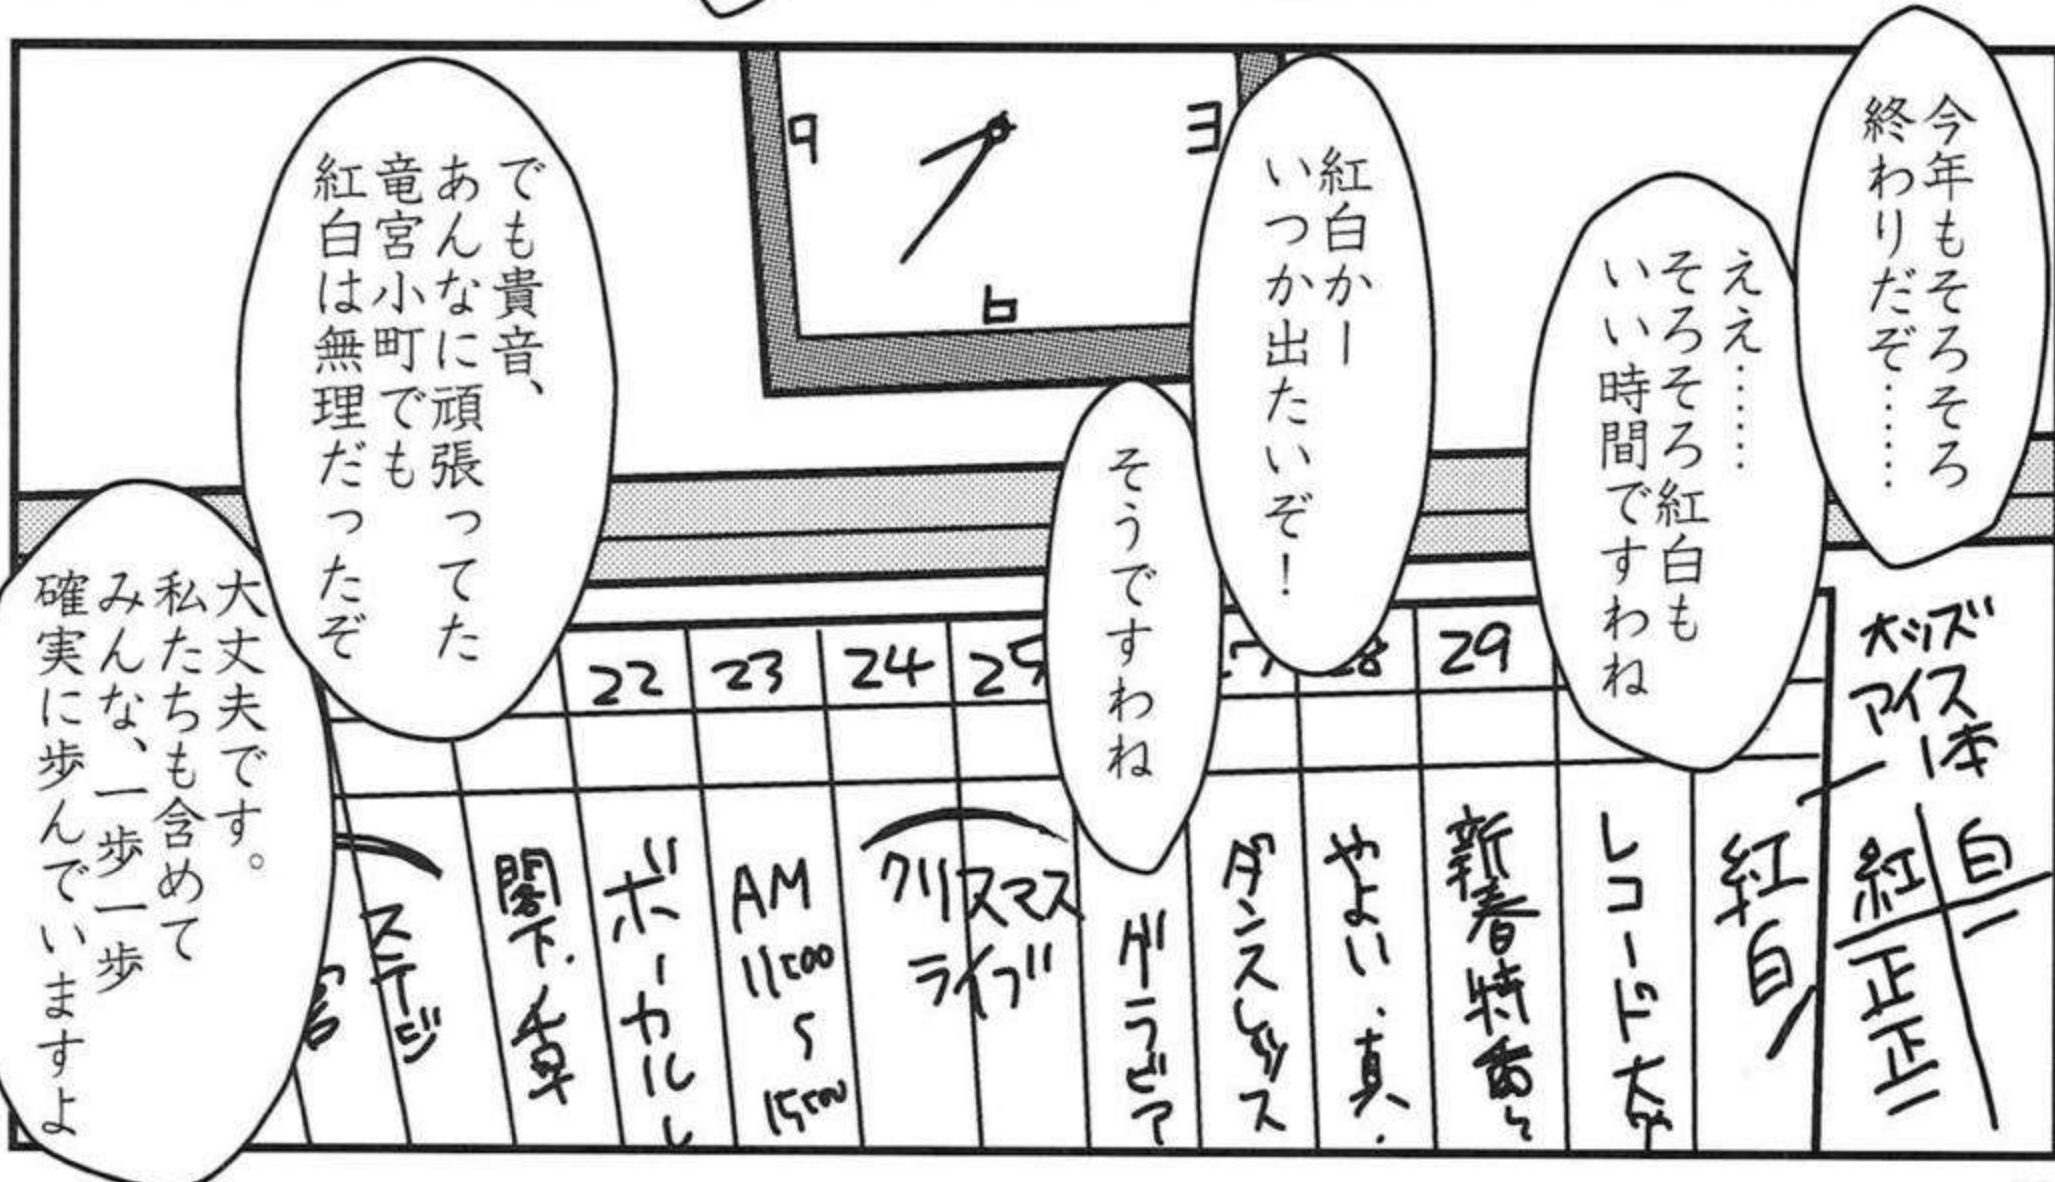 今年もそろそろ
終わりだぞ……
ええ……
そろそろ紅白も
いい時間ですわね
紅白かー
いつか出たいぞ！
そうですわね
でも貴音、
あんなに頑張ってた
竜宮小町でも
紅白は無理だったぞ
大丈夫です。
私たちも含めて
みんな、一歩一歩
確実に歩んでいますよ
9
3
6
22
23
24
25
29
ステージ
閣下、千早
ボーカルレ
AM
11:00
15:00
クリスマス
ライブ
グラビア
ダンスレッスス
やよい、真、
新春特番
レコード大
紅白
アイス
1本
紅
白
正正